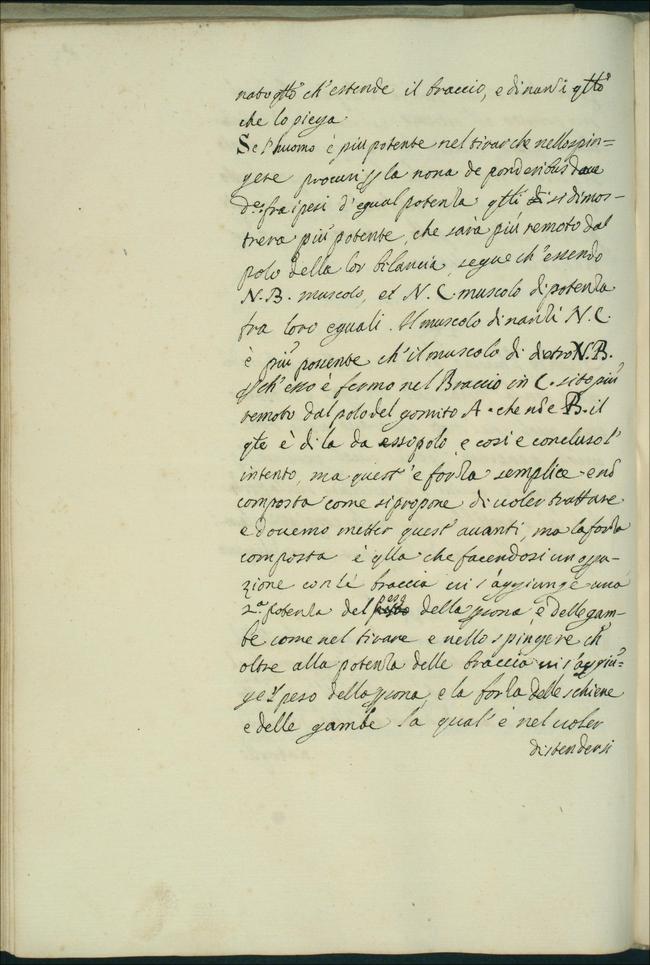 nato qtto ch'estende il braccio, e dinanzi qtto
che lo piega.
Se l'huomo è più potente nel tirar che nello spin=
gere procurisi la nona de ponderibus dove
dce fra i pesi d'egual potenza qlli si dimos-
trera più potente, che sarà più remoto dal
polo della lor bilancia, segue ch'essendo
N.B. muscolo, et N.C. muscolo di potenza
fra loro eguali. Il muscolo dinanzi N.C.
è più possente ch'il muscolo di dietro N.B.
ch'esso è fermo nel Braccio in C. sito più
remoto dal polo del gomito A. che nō è B. il
qle è di la da esso polo, e cosi e concluso l'
intento, ma quest'è forza semplice e nō
composta come si propone di voler trattare
e dovemo metter quest'avanti, ma la forza
composta è qlla che facendosi un opa-
zione con lè braccia vi s'aggiunge una
2.a potenza del peso della psona, e delle gam-
be come nel tirare e nello spingere ch'
oltre alla potenza delle braccia vi s'aggiū=
ge 'l peso della psona, e la forza delle schiene
e delle gambe la qual'è nel voler
distendersi